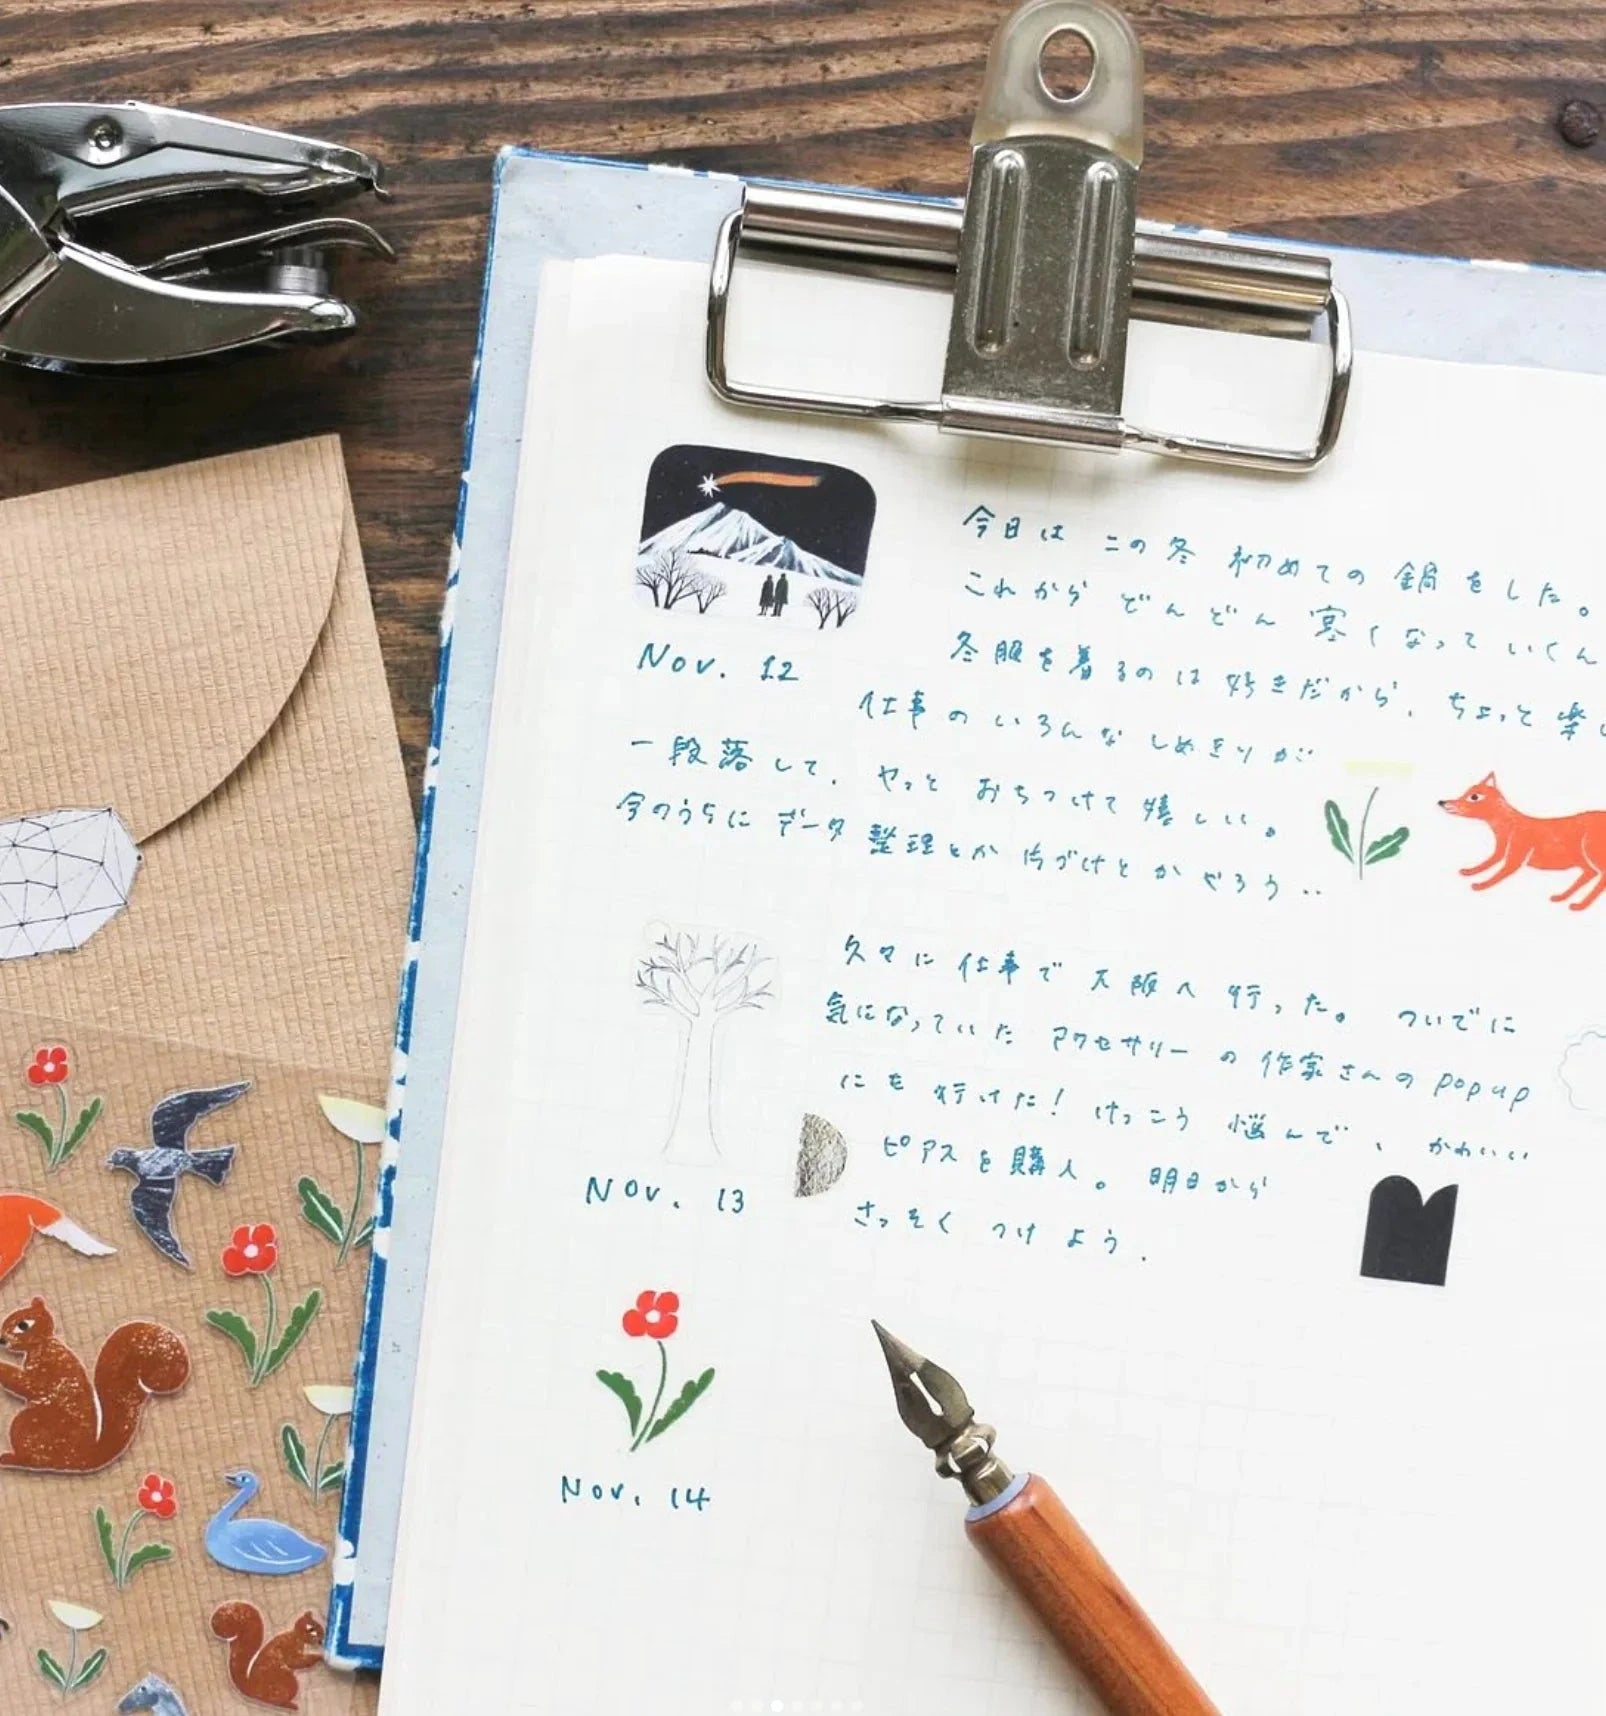 今日は この冬 初めての 鍋をした。
これから どんどん 寒くなって いくん
冬服を着るのは 好きだから、ちょっと 楽し
Nov. 12
仕事の いろんな しめきりが
一段落して、やっと おちついて 嬉しい。
今のうちに データ 整理とか 片づけとか やろう..
久々に 仕事で 大阪へ 行った。 ついでに
気になっていた アクセサリーの 作家さんの popup
にも 行けた! けっこう 悩んで、 かわいい
ピアスを 購入。 明日から
さっそく つけよう.
Nov. 13
Nov. 14